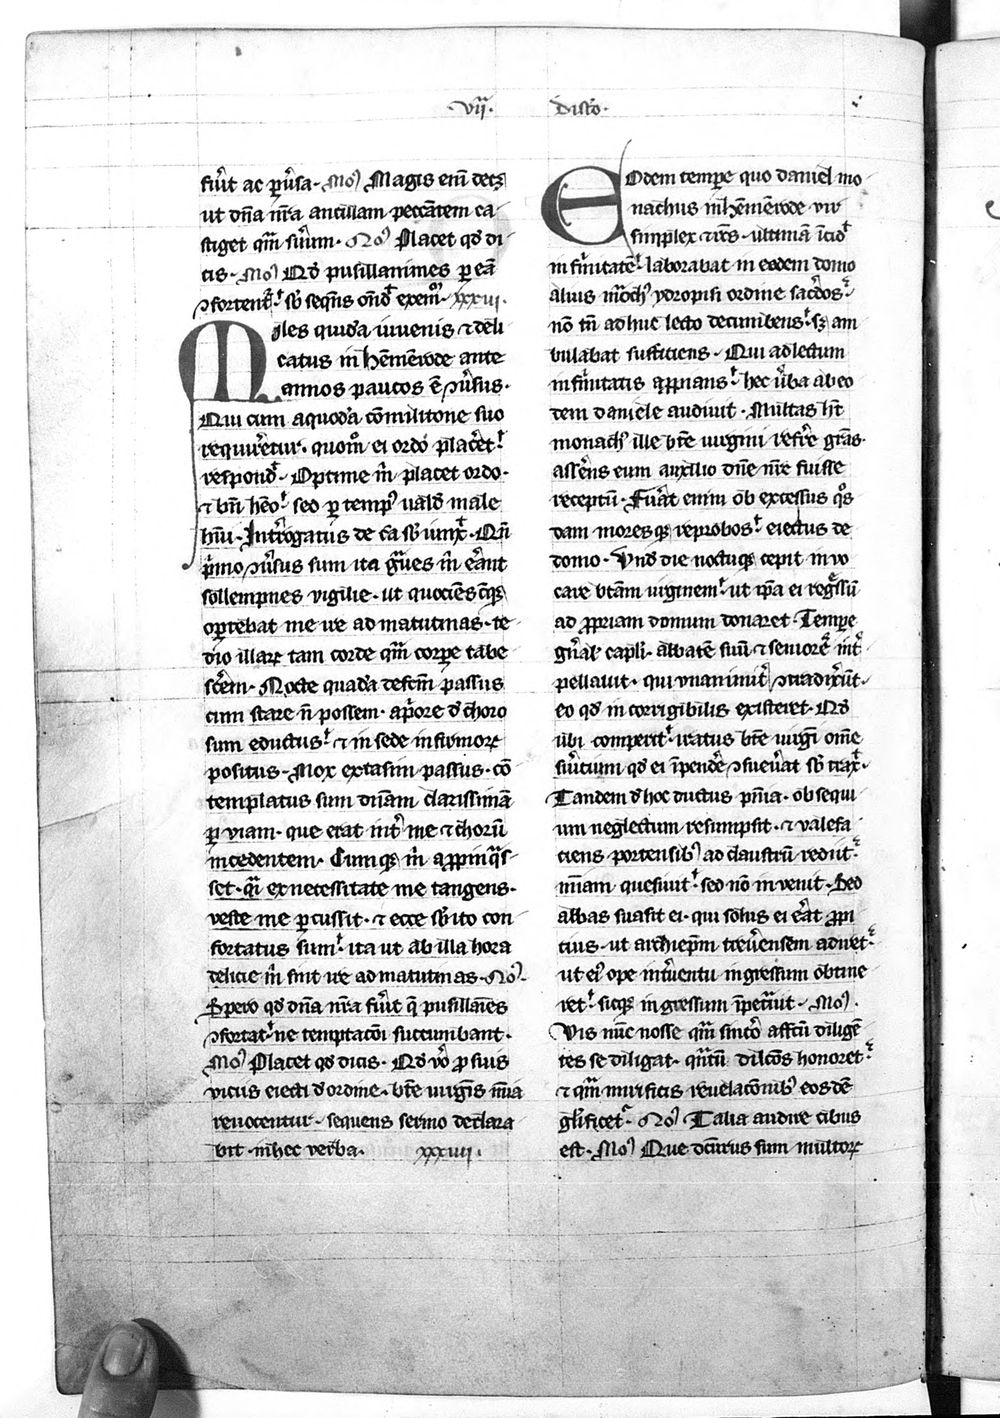 .vii. disto.
fiu̅t ac pu̅sa. Mo) Magis eni̅ decz
ut dn̅a nr̅a ancillam pecca̅tem ca
stiget qm̅ suu̅m. No) Placet qd di
cis. Mo) Qd pusillanimes p ea̅
ꝯfortent᷑ sb seqn̅s on̅d exem. xxxiii.
Miles quida̅ iuvenis ⁊ deli
catus in he̅me̅rode ante
annos paucos e̅ ꝯu̅sus.
Qui cum a quoda̅ co̅militone suo
requireretur. quom̅ ei ordo placet
respond. Optime m̅ placet ordo.
⁊ bn̅ heo. sed p temp9 vald male
hui. Int̅rogatus de ca sb iunx. Qn̅
p̅mo ꝯu̅sus sum ita gu̅es m̅ era̅nt
sollempnes vigilie. ut quocie̅scqz
oportebat me ire ad matutinas. te
dio illarꝝ tam corde qm̅ corpe tabe
sce̅rem. Nocte quada̅ defectm̅ passus
cum stare n̅ possem. a p̅ore d choro
sum eductus. ⁊ in sede infirmorꝝ
positus. Mox extasim passus. co̅
templatus sum dn̅am clarissima̅
p viam. que erat int̅ me ⁊ choru̅
incedentem. Cumqz m̅ appinqs
set. qi̅ ex necessitate me tangens.
veste me p cussit. ⁊ ecce sb̅ito con
fortatus sum. ita ut ab illa hora
delicie m̅ sint ire ad matutinas. No).
Spero qd dn̅a nr̅a fiu̅t q̅ pusillan̅es
ꝯfortat. ne temptacoi̅ succumbant.
Mo) Placet qd dicis. Qd vo̅ p suis
vicus eiecti d ordine. bt̅e uirgi̅s mi̅a
revocentur. sequens sermo declara
bit. in hec verba. xxxiiii.
Eodem tempe quo daniel mo
nachus in he̅me̅rode vir
simplex ⁊ rc̅s. ultima̅
infi̅rmitate̅. laborabat in eodem domo
alius mo̅ch9 ydropisi ordine sacd̅os.
no̅ tn̅ adhuc lecto decumbens. sz am
bulabat sufficiens. Qui ad lectum
infi̅rmitatis appians. hec ub̅a ab eo
dem daniele audiuit. Multas ht̅
monach9 ille bt̅e uirgini refre̅ gra̅s.
asse̅rens eum auxilio dn̅e nr̅e fuisse
receptu̅. Fu̅at enim ob excessus qs
dam moresqz reprobos. eiectus de
domo. Und die noctuqz cepit in vo
care bta̅m uirginem. ut ip̅a ei reg̅ssu̅
ad ppriam domum donaret. Tempe
gn̅al capli. abbate̅ suu̅ ⁊ seniore̅s int̅
pellauit. qui unanimit̅ ꝯtradixe̅ut.
eo qd incorrigibilis existeret. Qd
ubi comperit. iratus bt̅e uirgi̅ om̅e
sui̅cium qd ei i̅pende̅ ꝯsuev̅at sb̅ trax.
Tandem d hoc ductus pni̅a. obsequi
um neglectum resumpsit. ⁊ valefa
ciens portensib9 ad claustru̅ rediit.
mi̅am quesiuit. sed no̅ invenit. Sed
abbas suasit ei. qui solus ei e̅at ppi
cius. ut archiepm̅ treue̅rensem adiret.
ut ei9 ope int̅uentu ingressum obtine
ret. sicqz ingressum i̅petrauit. Mo).
Vis nu̅c nosse qm̅ sinc̅o affctu̅ dilige̅
tes se diligat. qn̅tu̅ dilco̅s honoret.
⁊ qm̅ mirificis reuelaco̅nib9 eosde̅
gl̅ificet. No) Talia audire cibus
est. Mo) Que dc̅urus sum multorꝝ